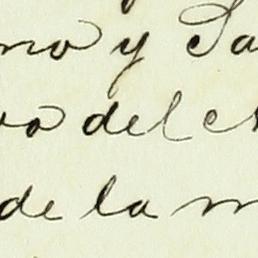 no y Sa
vo del
de la m